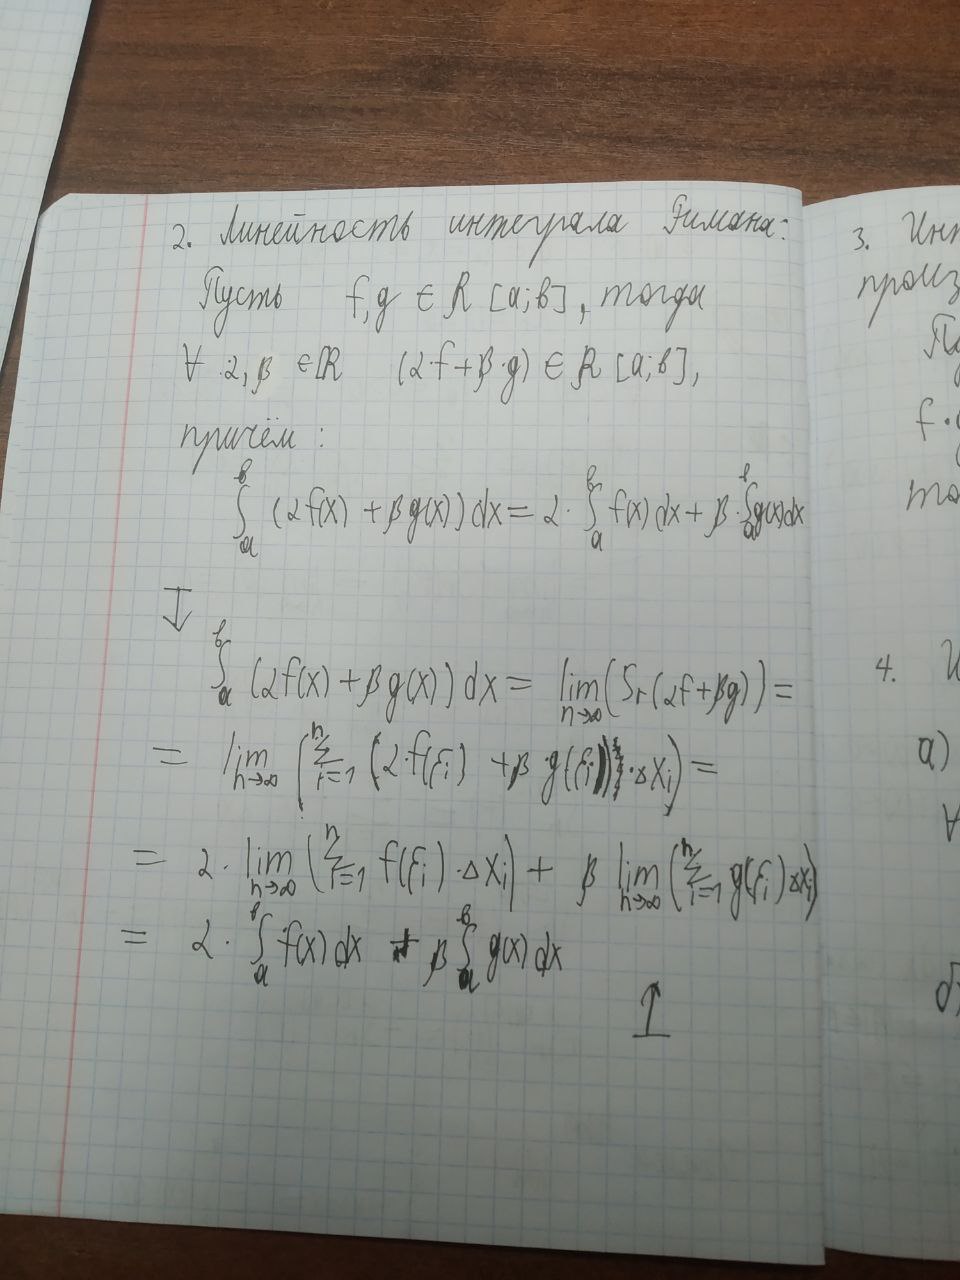 2. Линейность интеграла Римана:
Пусть f,g ∈ R [a;b], тогда
∀ α,β ∈ ℝ (α·f+β·g) ∈ R [a;b],
причём:
∫ₐᵇ (αf(x) + βg(x)) dx = α· ∫ₐᵇ f(x) dx + β· ∫ₐᵇ g(x)dx
↧
∫ₐᵇ (αf(x) + βg(x)) dx = lim n→∞ (Sτ(αf+βg)) =
= lim n→∞ (∑ i=1 n (α·f(ξi) + β·g(ξi))·Δxi) =
= α· lim n→∞ (∑ i=1 n f(ξi)·Δxi) + β lim n→∞ (∑ i=1 n g(ξi)·Δxi)
= α· ∫ₐᵇ f(x) dx + β ∫ₐᵇ g(x) dx
↥
3.
4.
а)
∀
f·